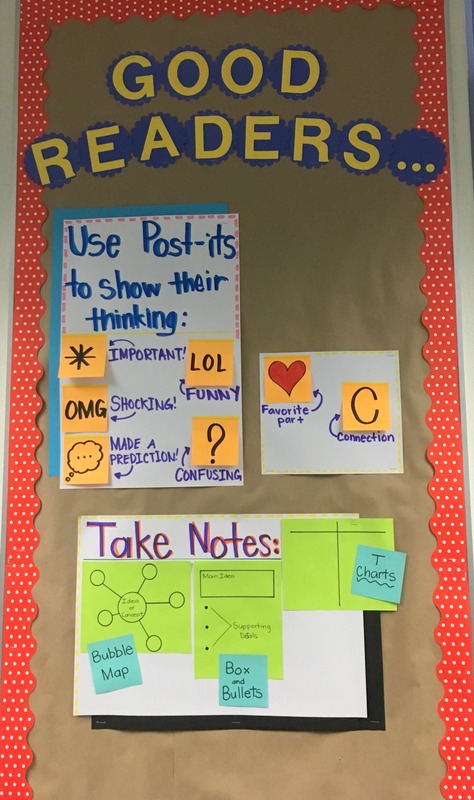 GOOD
READERS...
Use Post-its
to show their
thinking:
IMPORTANT!
LOL
FUNNY
OMG
SHOCKING!
MADE A
PREDICTION!
?
CONFUSING
Favorite
part
C
Connection
Take Notes:
Idea or
Concept
Bubble
Map
Main Idea
Supporting
Box
and
Bullets
T
Charts